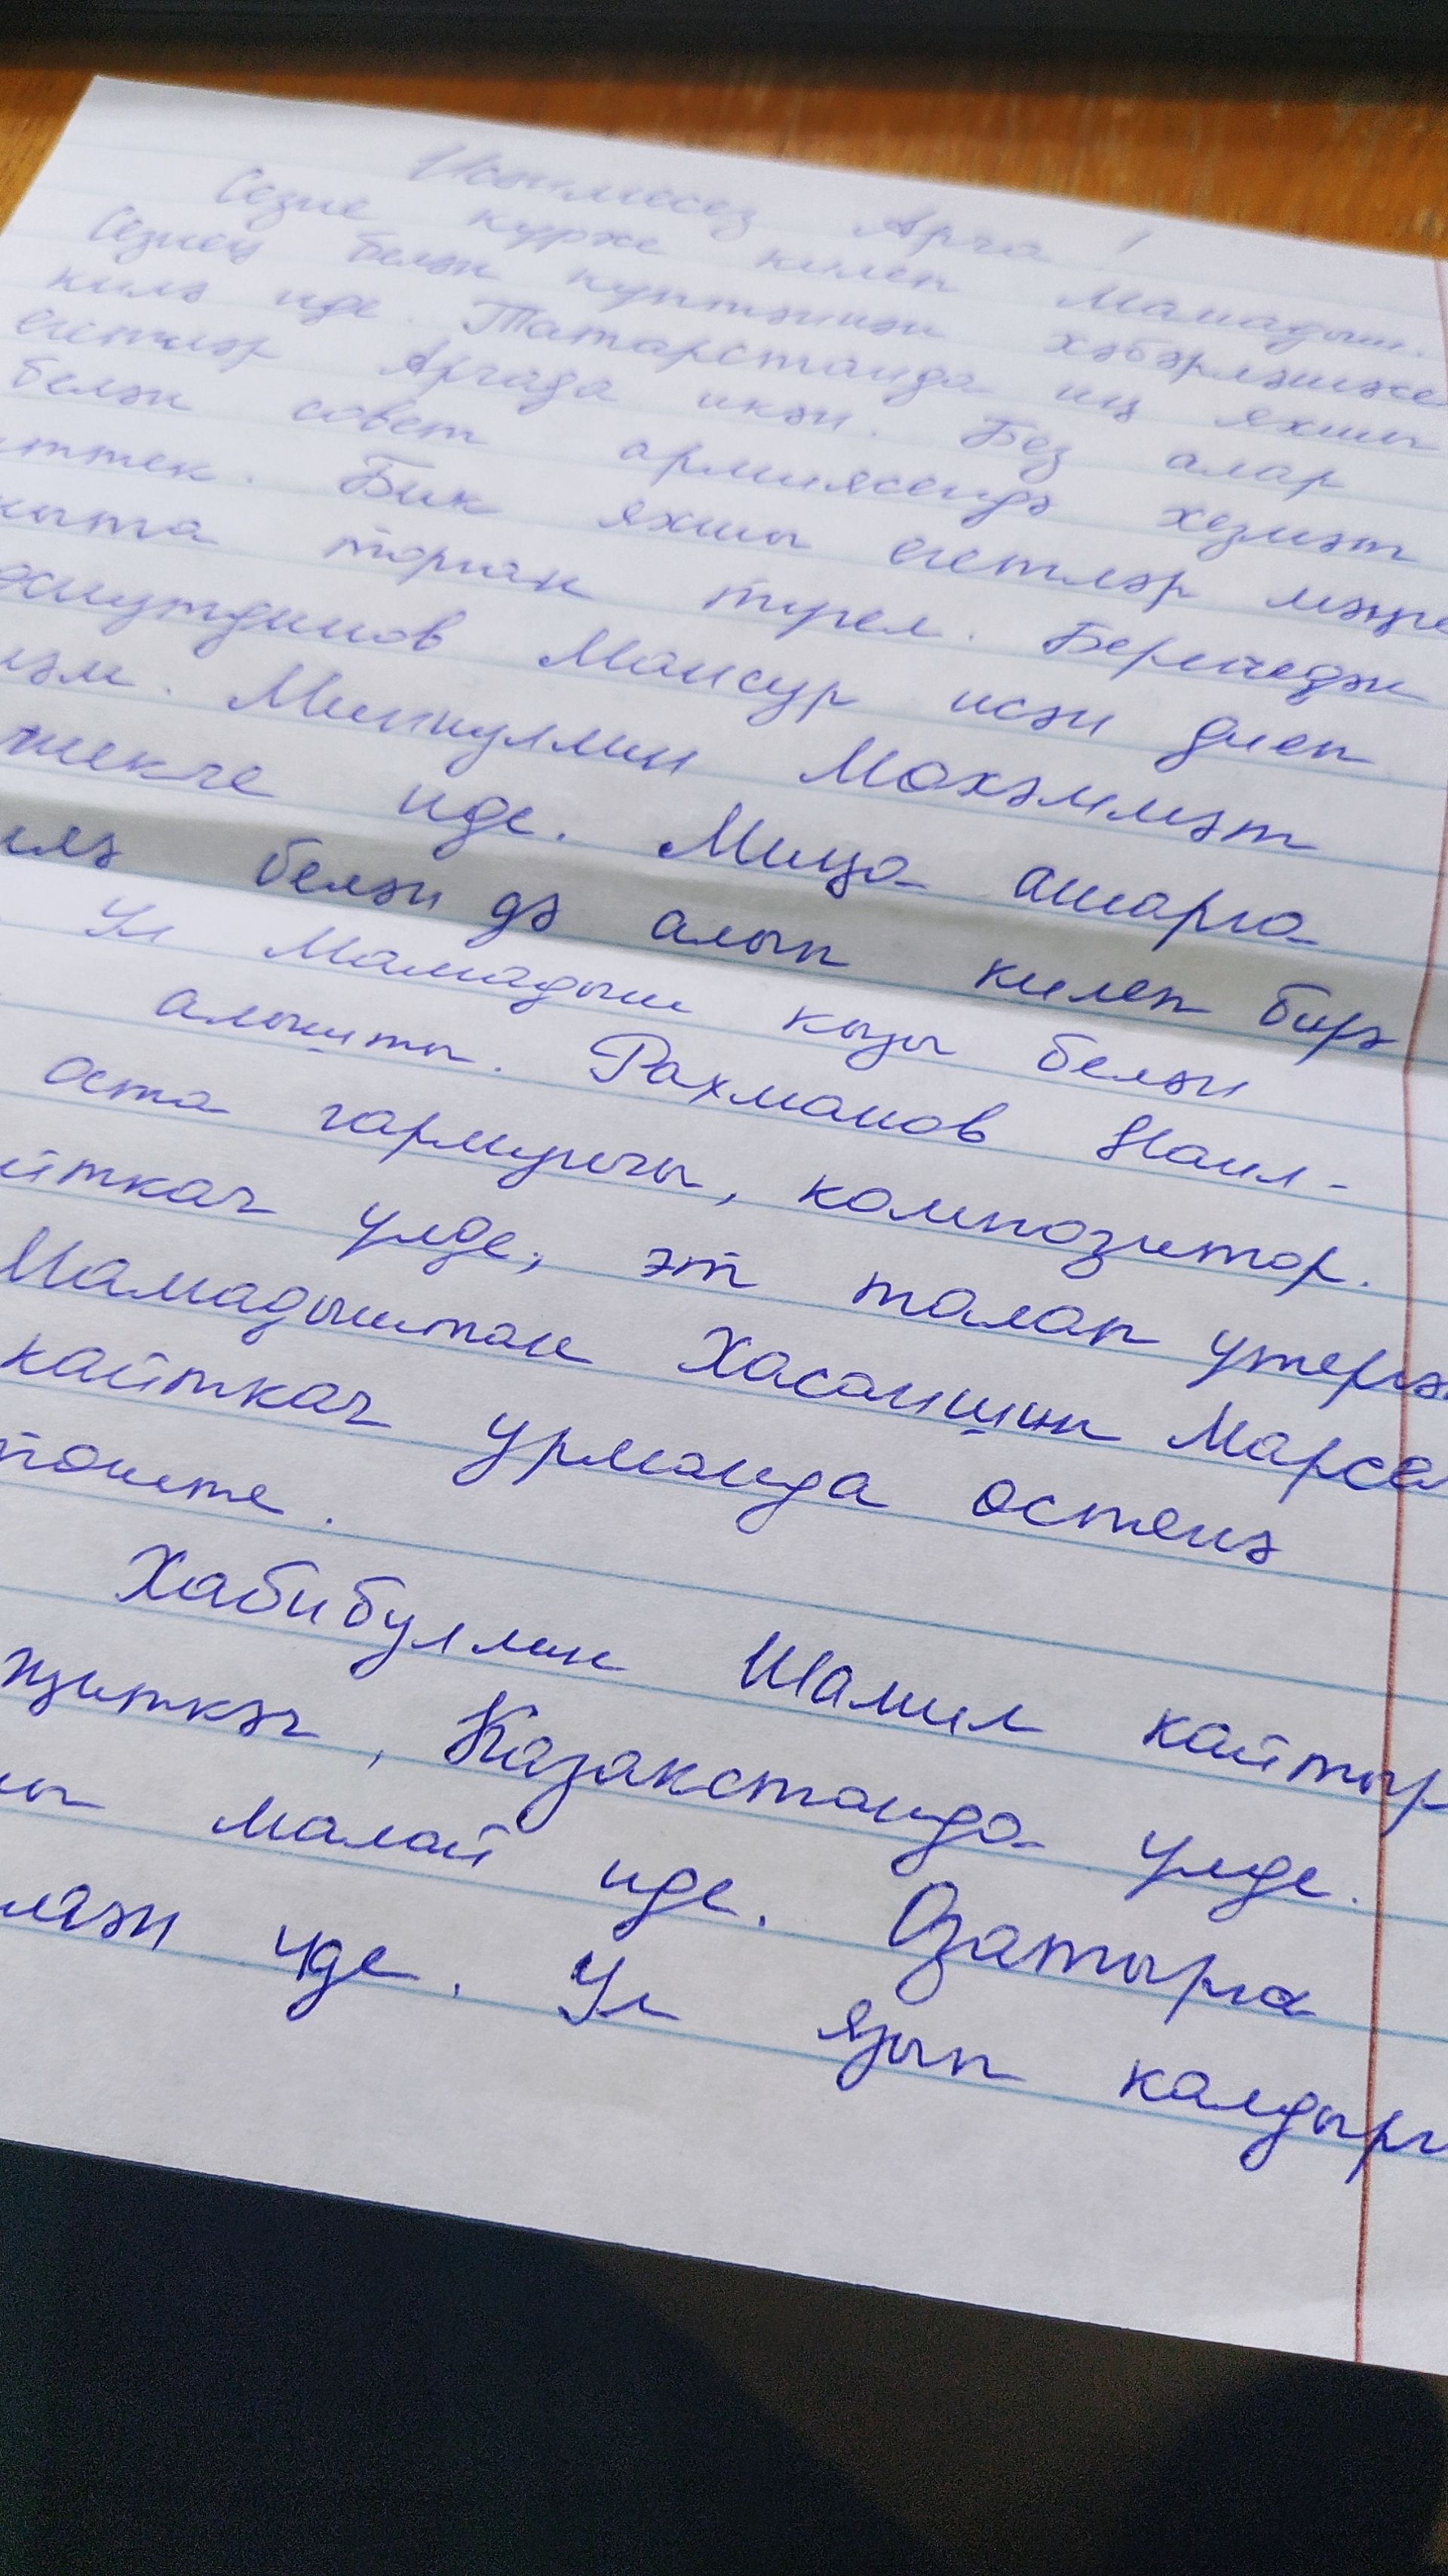 Исәнмесез Арча!
Сезне күрже килеп Мамадыш.
Сезнең белән күптәннән хәбәрләшәсе
килә иде. Татарстанда иң яхшы
егетләр Арчада икән. Без алар
белән совет армиясендә хезмәт
иттек. Бик яхшы егетләр мәңге
торган түгел. Беренчедән
Мансур исән диеп
Миннуллин Мөхәммәт
иде. Миңа ашарга
белән дә алып килеп бирә
Ул Мамадыш кызы белән
алышты. Рахманов Наил-
оста гармунчы, композитор.
кайткач үлде, эт талап үтергән
Мамадыштан Хасаншин Марсе
кайткач урманда өстенә
төште.
Хабибуллин Шамил кайтыр
җиткәч, Казакстанда үлде.
малай иде. Озатырга
иде. Ул язып калдырг